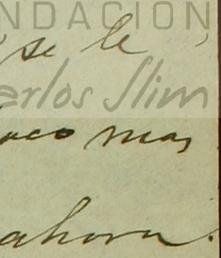 NDACIÓN
se le
arlos Slim
oco mas
ahora.